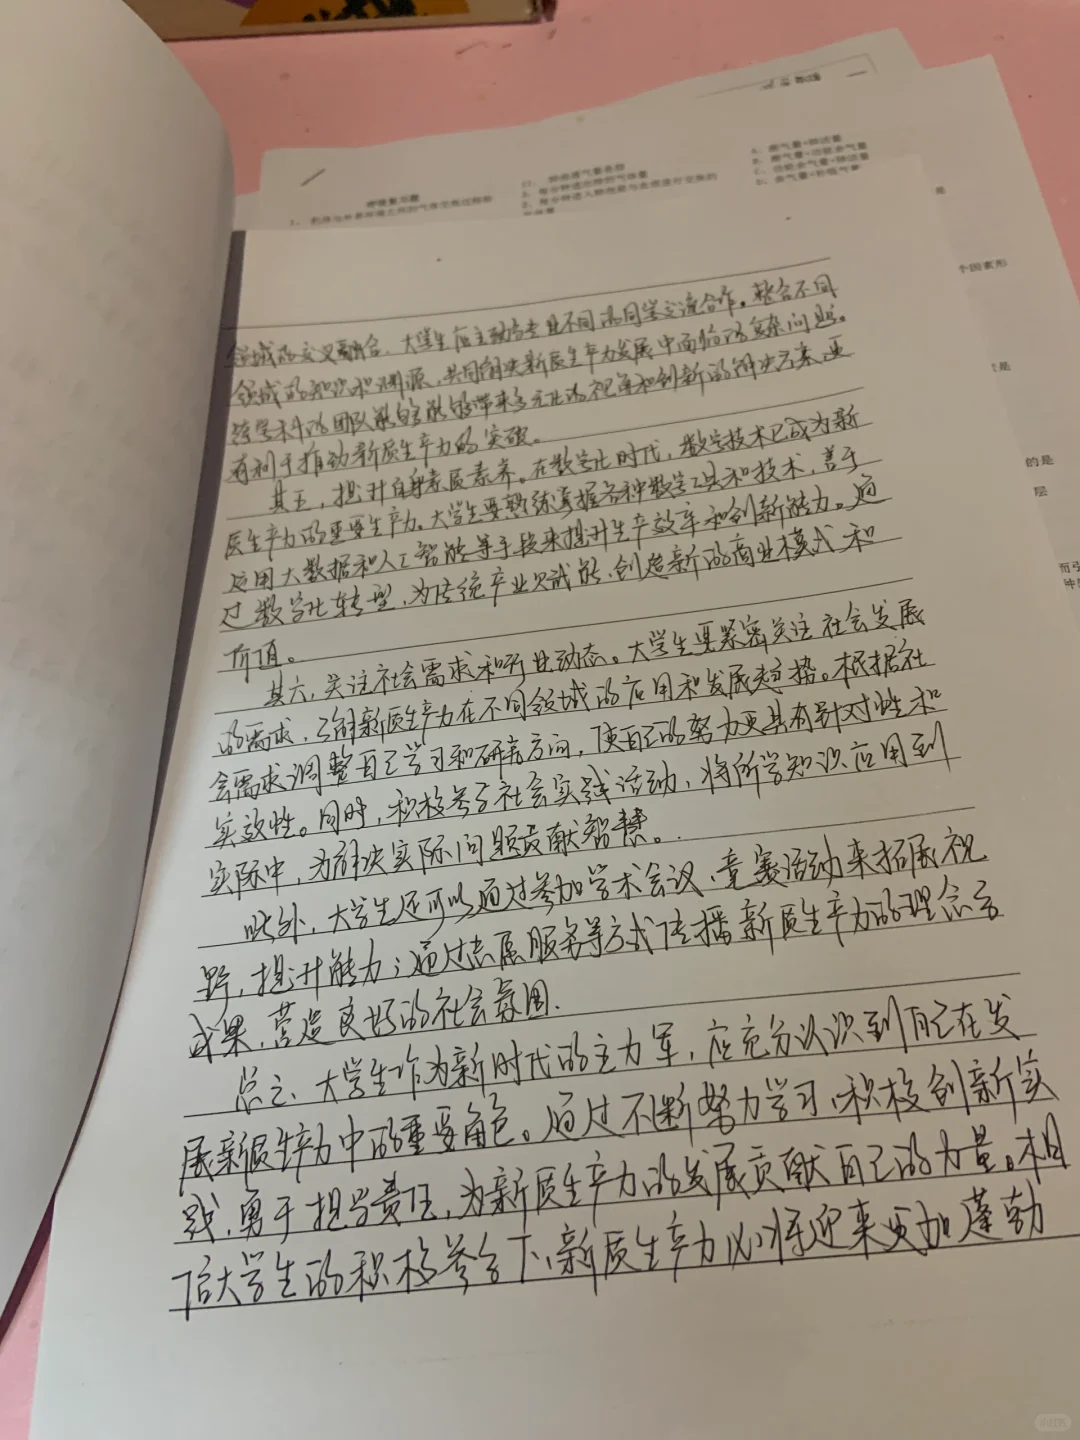 呼吸复习题
领域的交叉融合，大学生应主动与专业不同的同学交流合作。整合不同
领域的知识和渊源，共同解决新质生产力发展中面临的复杂问题。
跨学科的团队能够能够带来多元化的视角和创新的解决方案，更
有利于推动新质生产力的突破。
其五，提升自身素质素养。在数字化时代，数字技术已成为新
质生产力的重要生产力。大学生要熟练掌握各种数字工具和技术，善于
运用大数据和人工智能等手段来提升生产效率和创新能力。通
过数字化转型，为传统产业赋能，创造新的商业模式和
价值。
其六，关注社会需求和行业动态。大学生要紧密关注社会发展
的需求，了解新质生产力在不同领域的应用和发展趋势。根据社
会需求调整自己学习和研究方向，使自己的努力更具有针对性和
实效性。同时，积极参与社会实践活动，将所学知识应用到
实际中，为解决实际问题贡献智慧。
此外，大学生还可以通过参加学术会议、竞赛活动来拓展视
野，提升能力；通过志愿服务等方式传播新质生产力的理念与
成果，营造良好的社会氛围.
总之，大学生作为新时代的主力军，应充分认识到自己在发
展新质生产力中的重要角色。通过不断努力学习、积极创新实
践，勇于担当责任，为新质生产力的发展贡献自己的力量。相
信大学生的积极参与下，新质生产力必将迎来更加蓬勃
个因素形
的是
层
小红书